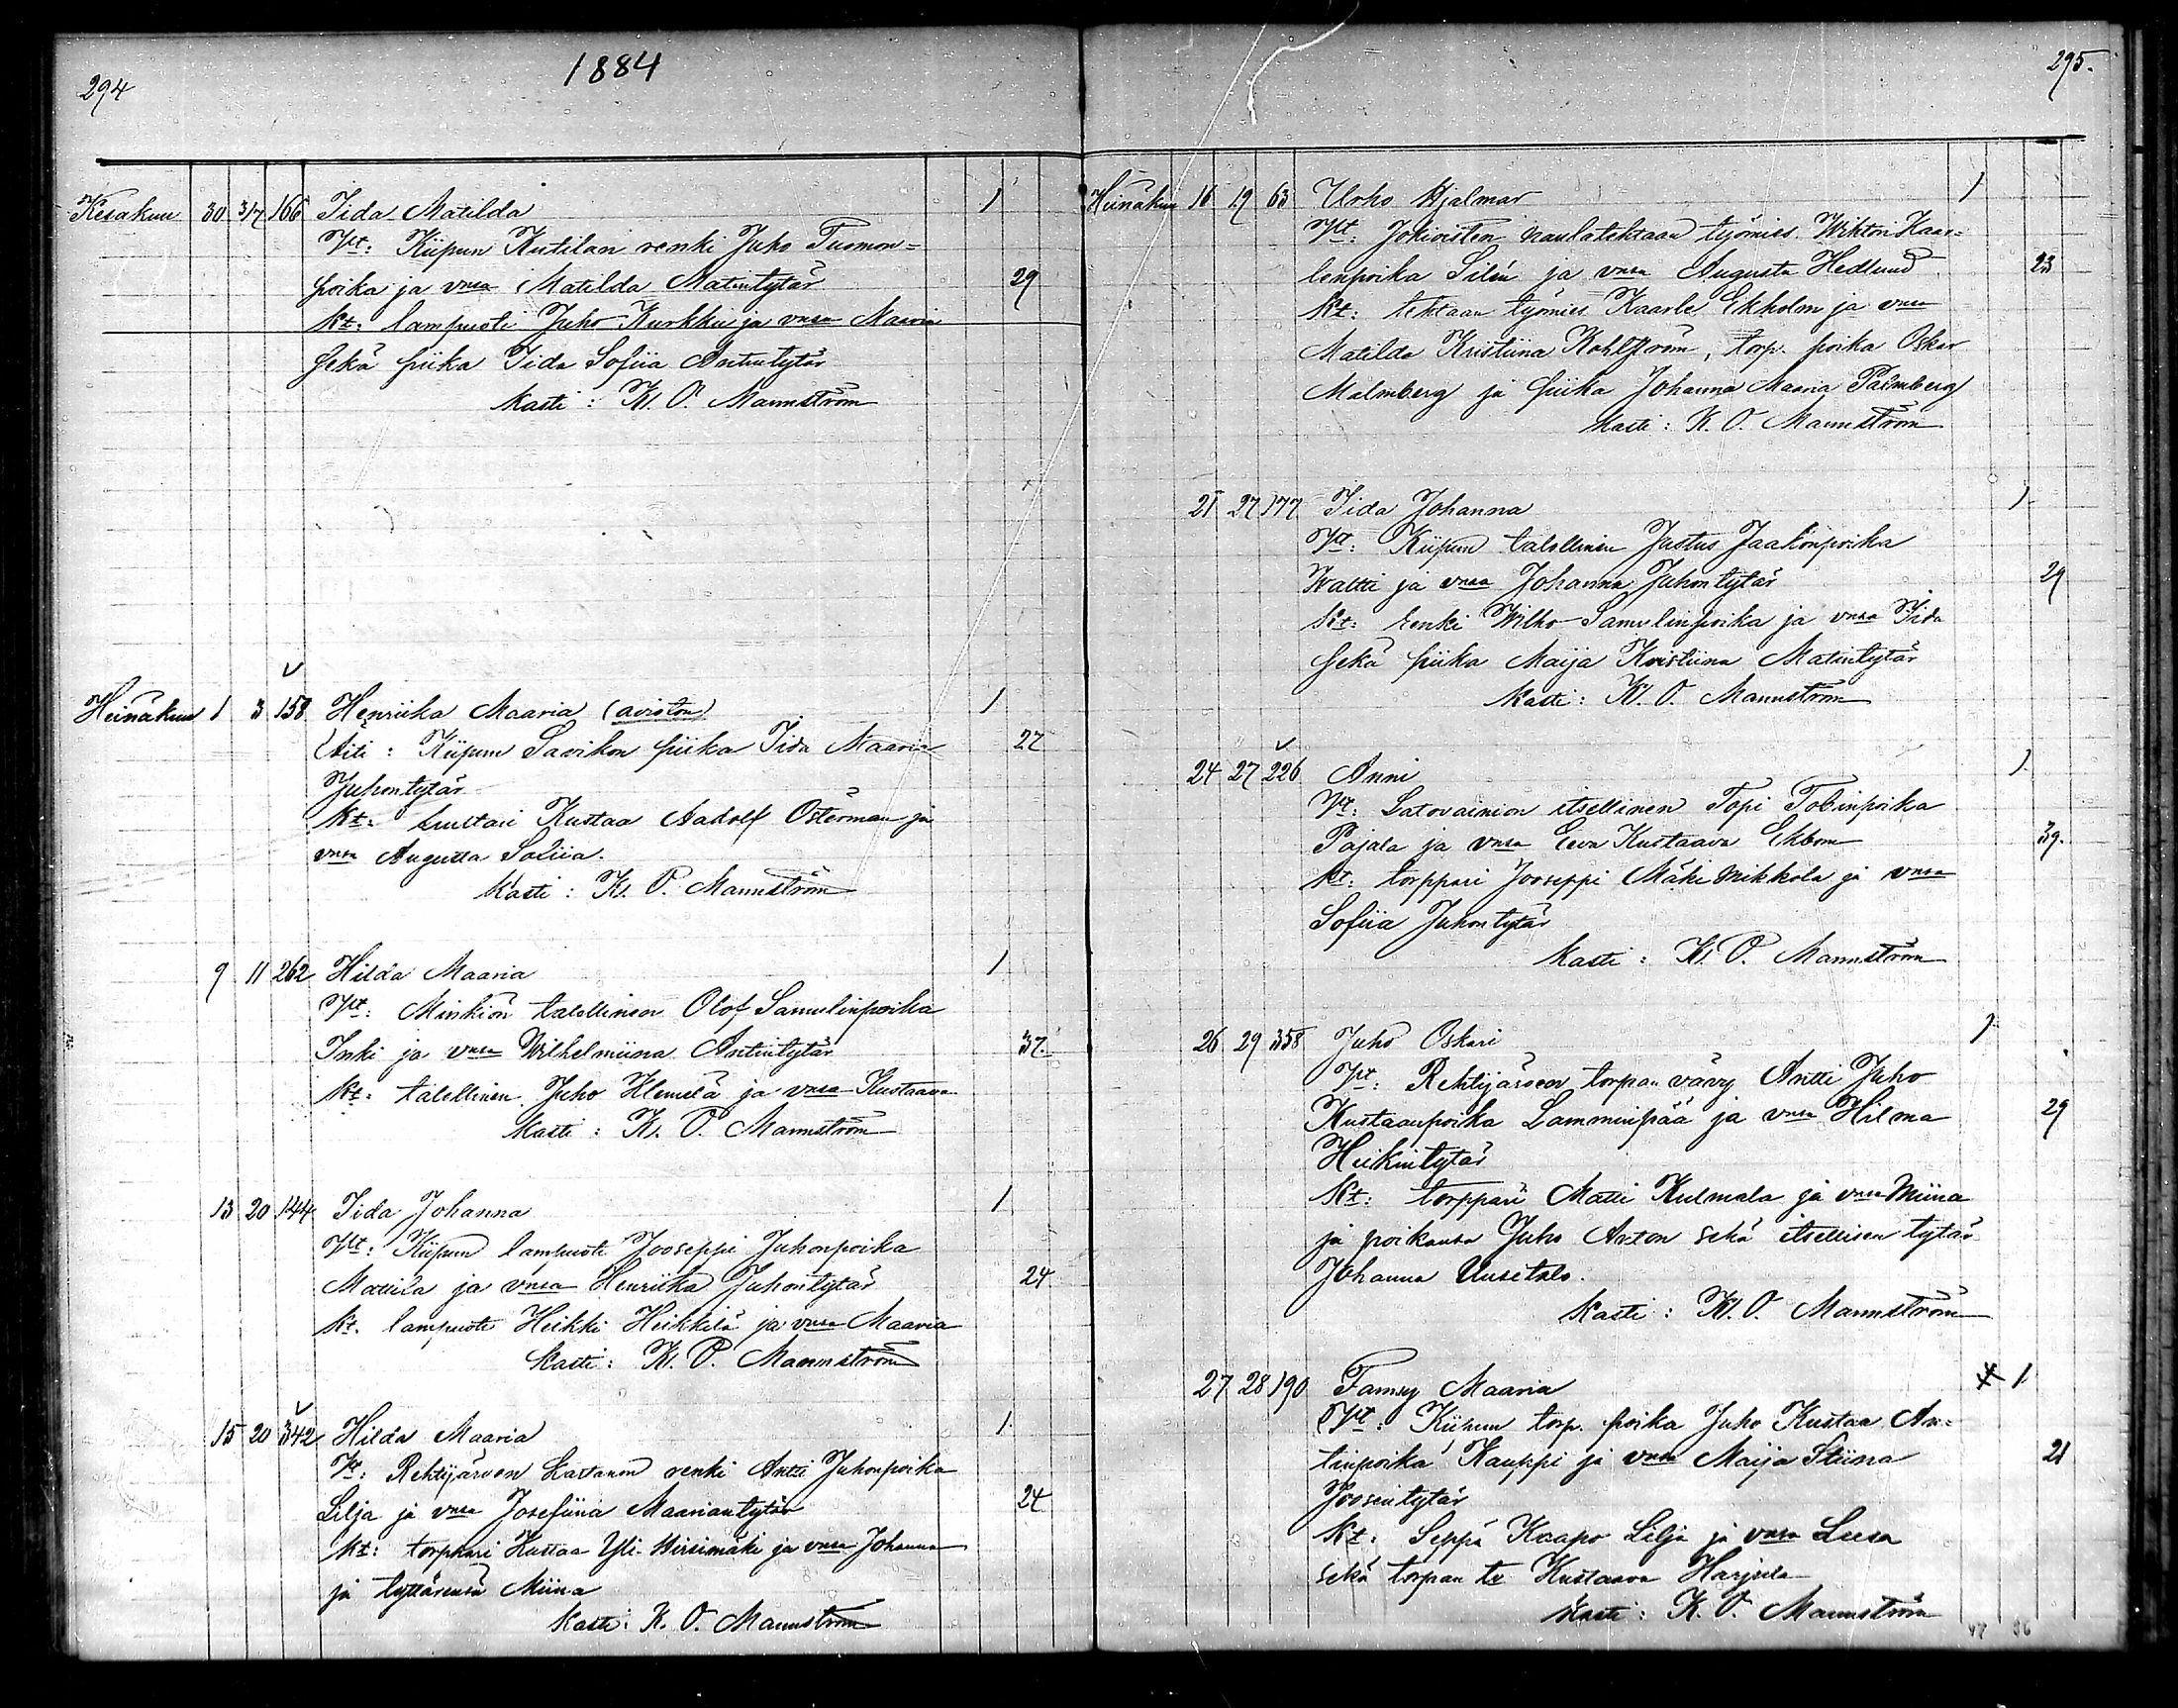 294
1884
Kesäkuu 30 3/7 166 Iida Matilda 1
Vt: Kiipun Kutilan renki Juho Tuomon=
poika ja vnsa Matilda Matintytär 29
Kt: lampuoti Juho Kurkkii ja vnsa Maaria
sekä piika Iida Sofiia Antintytär
Kasti: K. O. Mannström
Heinäkuu 1 3 158 Henriika Maaria (avioton) 1
Äiti: Kiipun Savikon piika Iida Maaria 27
Juhontytär
Kt: Kustaa Aadolf Österman ja
vnsa Augusta Sofiia.
Kasti: K. O. Mannström
9 11 262 Hilda Maaria 1
Vt: Minkiön talollinen Olof Samulinpoika
Inki ja vnsa Wilhelmiina Antintytär 37.
Kt: talollinen Juho Klemelä ja vnsa Kustaava
Kasti: K. O. Mannström
13 20 144 Iida Johanna 1
Vt: Kiipun lampuoti Jooseppi Juhonpoika
Mattila ja vnsa Henriika Juhontytär 24
Kt. lampuoti Heikki Heikkilä ja vnsa Maaria
Kasti: K. O. Mannström
15 20 342 Hilda Maaria 1.
Vt: Rehtijärven Kartanon renki Antti Juhonpoika
Lilja ja vnsa Josefiina Maariantytär 24
Kt: torppari Kustaa Yli-Hirsimäki ja vnsa Johanna
ja tyttärensä Miina
Kasti: K. O. Mannström
295.
Heinäkuu 16 19 63 Urho Hjalmar 1
Vt: Jokioisten naulatehtaan työmies Wihtori Kaar=
lenpoika Silén ja vnsa Augusta Hedlund 23
Kt: tehtaan työmies Kaarle Ekholm ja vnsa
Matilda Kristiina Kohlström, torp. poika Oskar
Malmberg ja piika Johanna Maaria Palmberg
Kasti: K. O. Mannström
21 27 177 Iida Johanna 1
Vt: Kiipun talollinen Justus Jaakonpoika
Waltti ja vnsa Johanna Juhontytär 29
Kt: renki Wilho Samulinpoika ja vnsa Iida
sekä piika Maija Kristiina Matintytär
Kasti: K. O. Mannström
24 27 226 Anni 1
Vt: Latovainion itsellinen Topi Tobinpoika
Pajala ja vnsa Eeva Kustaava Ekbom 39.
Kt: torppari Jooseppi Mäki Mikkola ja vnsa
Sofiia Juhontytär
Kasti: K. O. Mannström
26 29 358 Juho Oskari 1
Vt: Rehtijärven torpan vävy Antti Juho
Kustaanpoika Lamminpää ja vnsa Hilma 29
Heikintytär
Kt: torppari Matti Kulmala ja vnsa Miina
ja poikansa Juho Anton sekä itsellisen tytär
Johanna Uusitalo.
Kasti: K. O. Mannström
27 28 190 Fanny Maaria 1
Vt: Kiipun torp. poika Juho Kustaa An=
tinpoika Kauppi ja vnsa Maija Stiina 21
Joosentytär
Kt: Seppä Kaapo Lilja ja vnsa Leesa
sekä torpan tr Kustaava Harjula
Kasti: K. O. Mannström
47 36